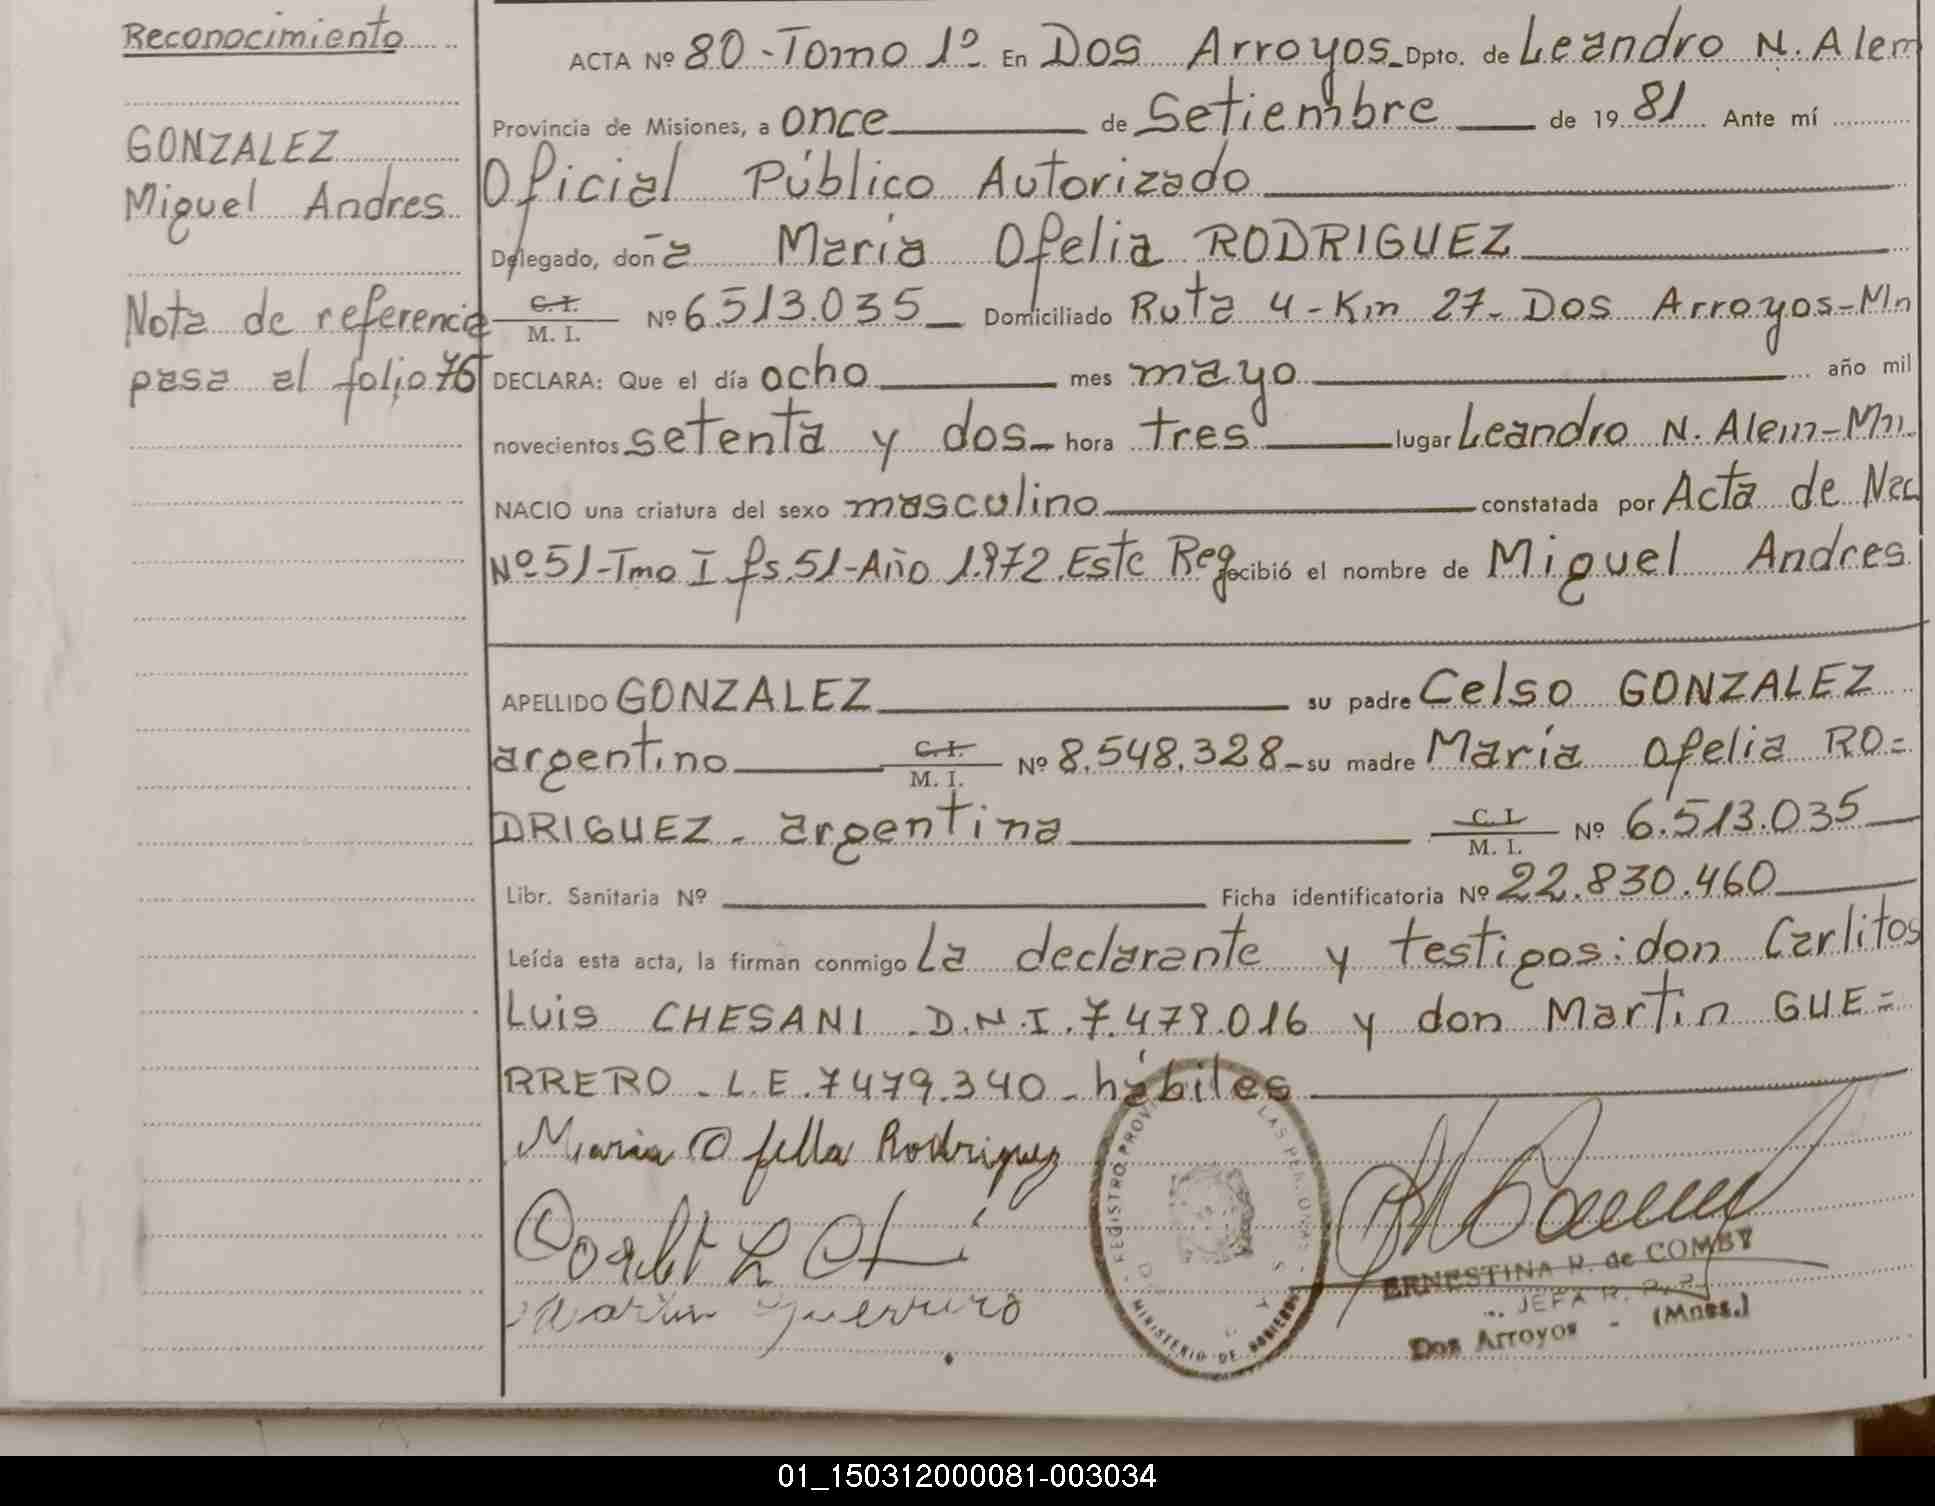 Reconocimiento
GONZALEZ
Miguel Andres
Nota de referencia
pasa al folio 76
ACTA Nº 80 - Tomo 1º En Dos Arroyos Dpto. de Leandro N. Alem
Provincia de Misiones, a once de Setiembre de 1981 Ante mí
Oficial Público Autorizado
Delegado, doña María Ofelia RODRIGUEZ
C. I.
M. I. Nº 6.513.035 Domiciliado Ruta 4 - Km 27 - Dos Arroyos - Mn
DECLARA: Que el día ocho mes mayo año mil
novecientos setenta y dos hora tres lugar Leandro N. Alem - Mn.
NACIO una criatura del sexo masculino constatada por Acta de Nac
Nº 51 - Tmo I fs. 51 - Año 1.972. Este Reg. recibió el nombre de Miguel Andres
APELLIDO GONZALEZ su padre Celso GONZALEZ
argentino C. I.
M. I. Nº 8.548.328 - su madre María Ofelia RO=
DRIGUEZ - argentina C. I.
M. I. Nº 6.513.035
Libr. Sanitaria Nº Ficha identificatoria Nº 22.830.460
Leída esta acta, la firman conmigo La declarante y testigos: don Carlitos
Luis CHESANI - D.N.I. 7.479.016 y don Martin GUE=
RRERO - L.E. 7479.340 - hábiles
Maria Ofella Rodriguez
Martin Guerrero
REGISTRO PROVI LAS PERSONAS
MINISTERIO DE GOBIERNO
ERNESTINA R. de COMBY
JEFA R. P.
Dos Arroyos - (Mnes.)
01_150312000081-003034